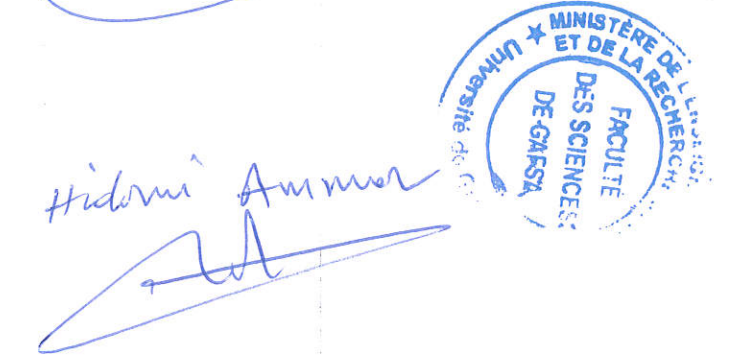 Hidouri Ammar
MINISTÈRE DE L'
ET DE LA RECHERCH
Université de G
FACULTÉ
DES SCIENCES
DE GAFSA